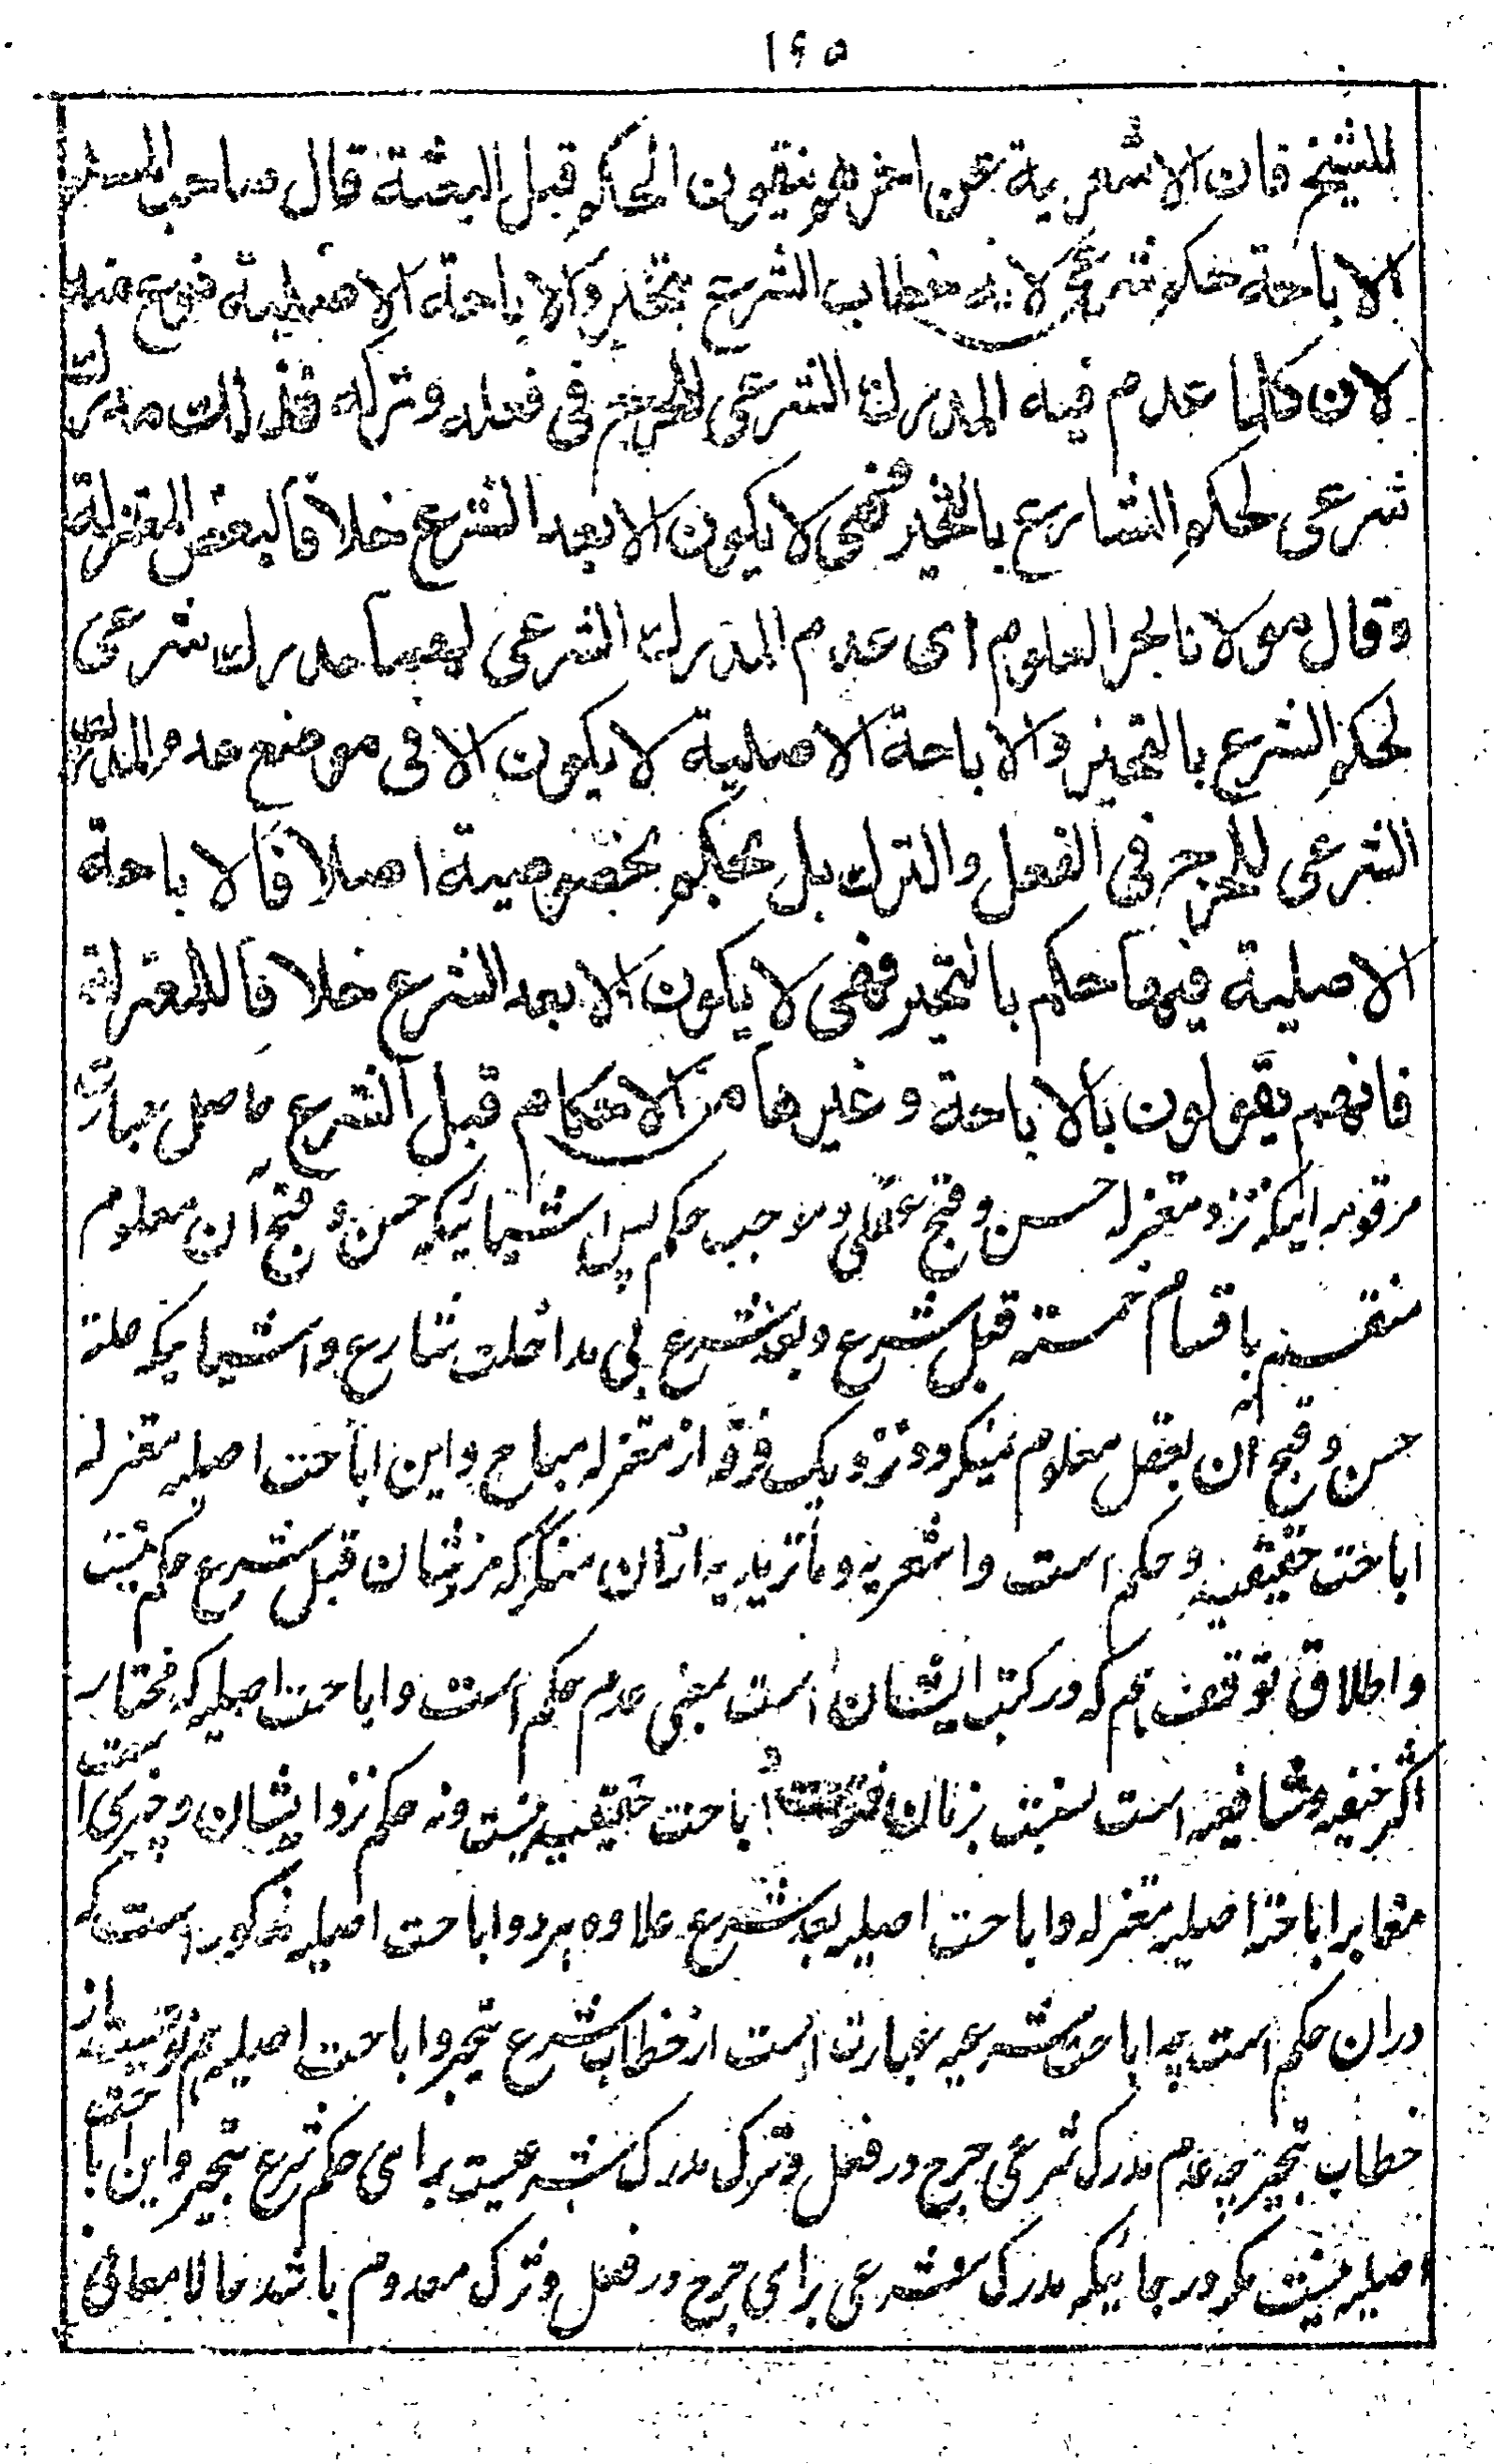 ١٤٥
للشيخ فان الاشعرية عن اخرهم ينفون الحكم قبل البعثة قال صاحب المسلم
الاباحة حكم شرعى لانه خطاب الشرع بتخير والاباحة الاصلية نوع منه
لان كلما عدم فيه المدرك الشرعى للحرج فى فعله وتركه فذلك مدرك
شرعى لحكم الشارع بالتخير فهى لا يكون الا بعد الشرع خلافا لبعض المعتزلة
وقال مولانا بحر العلوم اى عدم المدرك الشرعى لهما مدرك شرعى
لحكم الشرع بالتخير والاباحة الاصلية لا يكون الا فى موضع عدم المدرك
الشرعى للحرج فى الفعل والترك بل حكم بخصوصية اصلا فالاباحة
الاصلية فيها حكم بالتخير فهى لا يكون الا بعد الشرع خلافا للمعتزلة
فانهم يقولون بالاباحة وغيرها من الاحكام قبل الشرع حاصل عبارت
مرقومه اينكه نزد معتزله حسن وقبح عقلى وموجب حكم پس اشيائيكه حسن وقبح آن معلوم
منقسم باقسام خمسه قبل شرع وبعد شرع بى مداخلت شارع واشيائيكه صفة
حسن وقبح آن بعقل معلوم نميگردد نزد يك فرقه از معتزله مباح واين اباحت اصليه معتزله
اباحت حقيقيه وحكم است واشعريه وماتريديه ازان منكر كه نزدشان قبل شرع حكم نيست
واطلاق توقف هم كه در كتب ايشان است بمعنى عدم حكم است واباحت اصليه كه مختار
اكثر حنفيه وشافعيه است بنسبت زمان فترت اباحت حقيقيه نيست ونه حكم نزد ايشان وچيزى است
مغاير اباحة اصليه معتزله واباحت اصليه بعد شرع علاوه هر دو اباحت اصليه مذكور است كه
دران حكم است چه اباحت شرعيه عبارت است از خطاب شرع بتخير واباحت اصليه هم نوعيست از
خطاب بتخير چه عدم مدرك شرعى حرج در فعل وترك مدرك شرعيست براى حكم شرع بتخير واين اباحت
اصليه نيست مگر در جائيكه مدرك شرعى براى حرج در فعل وترك معدوم باشد حالا معانى